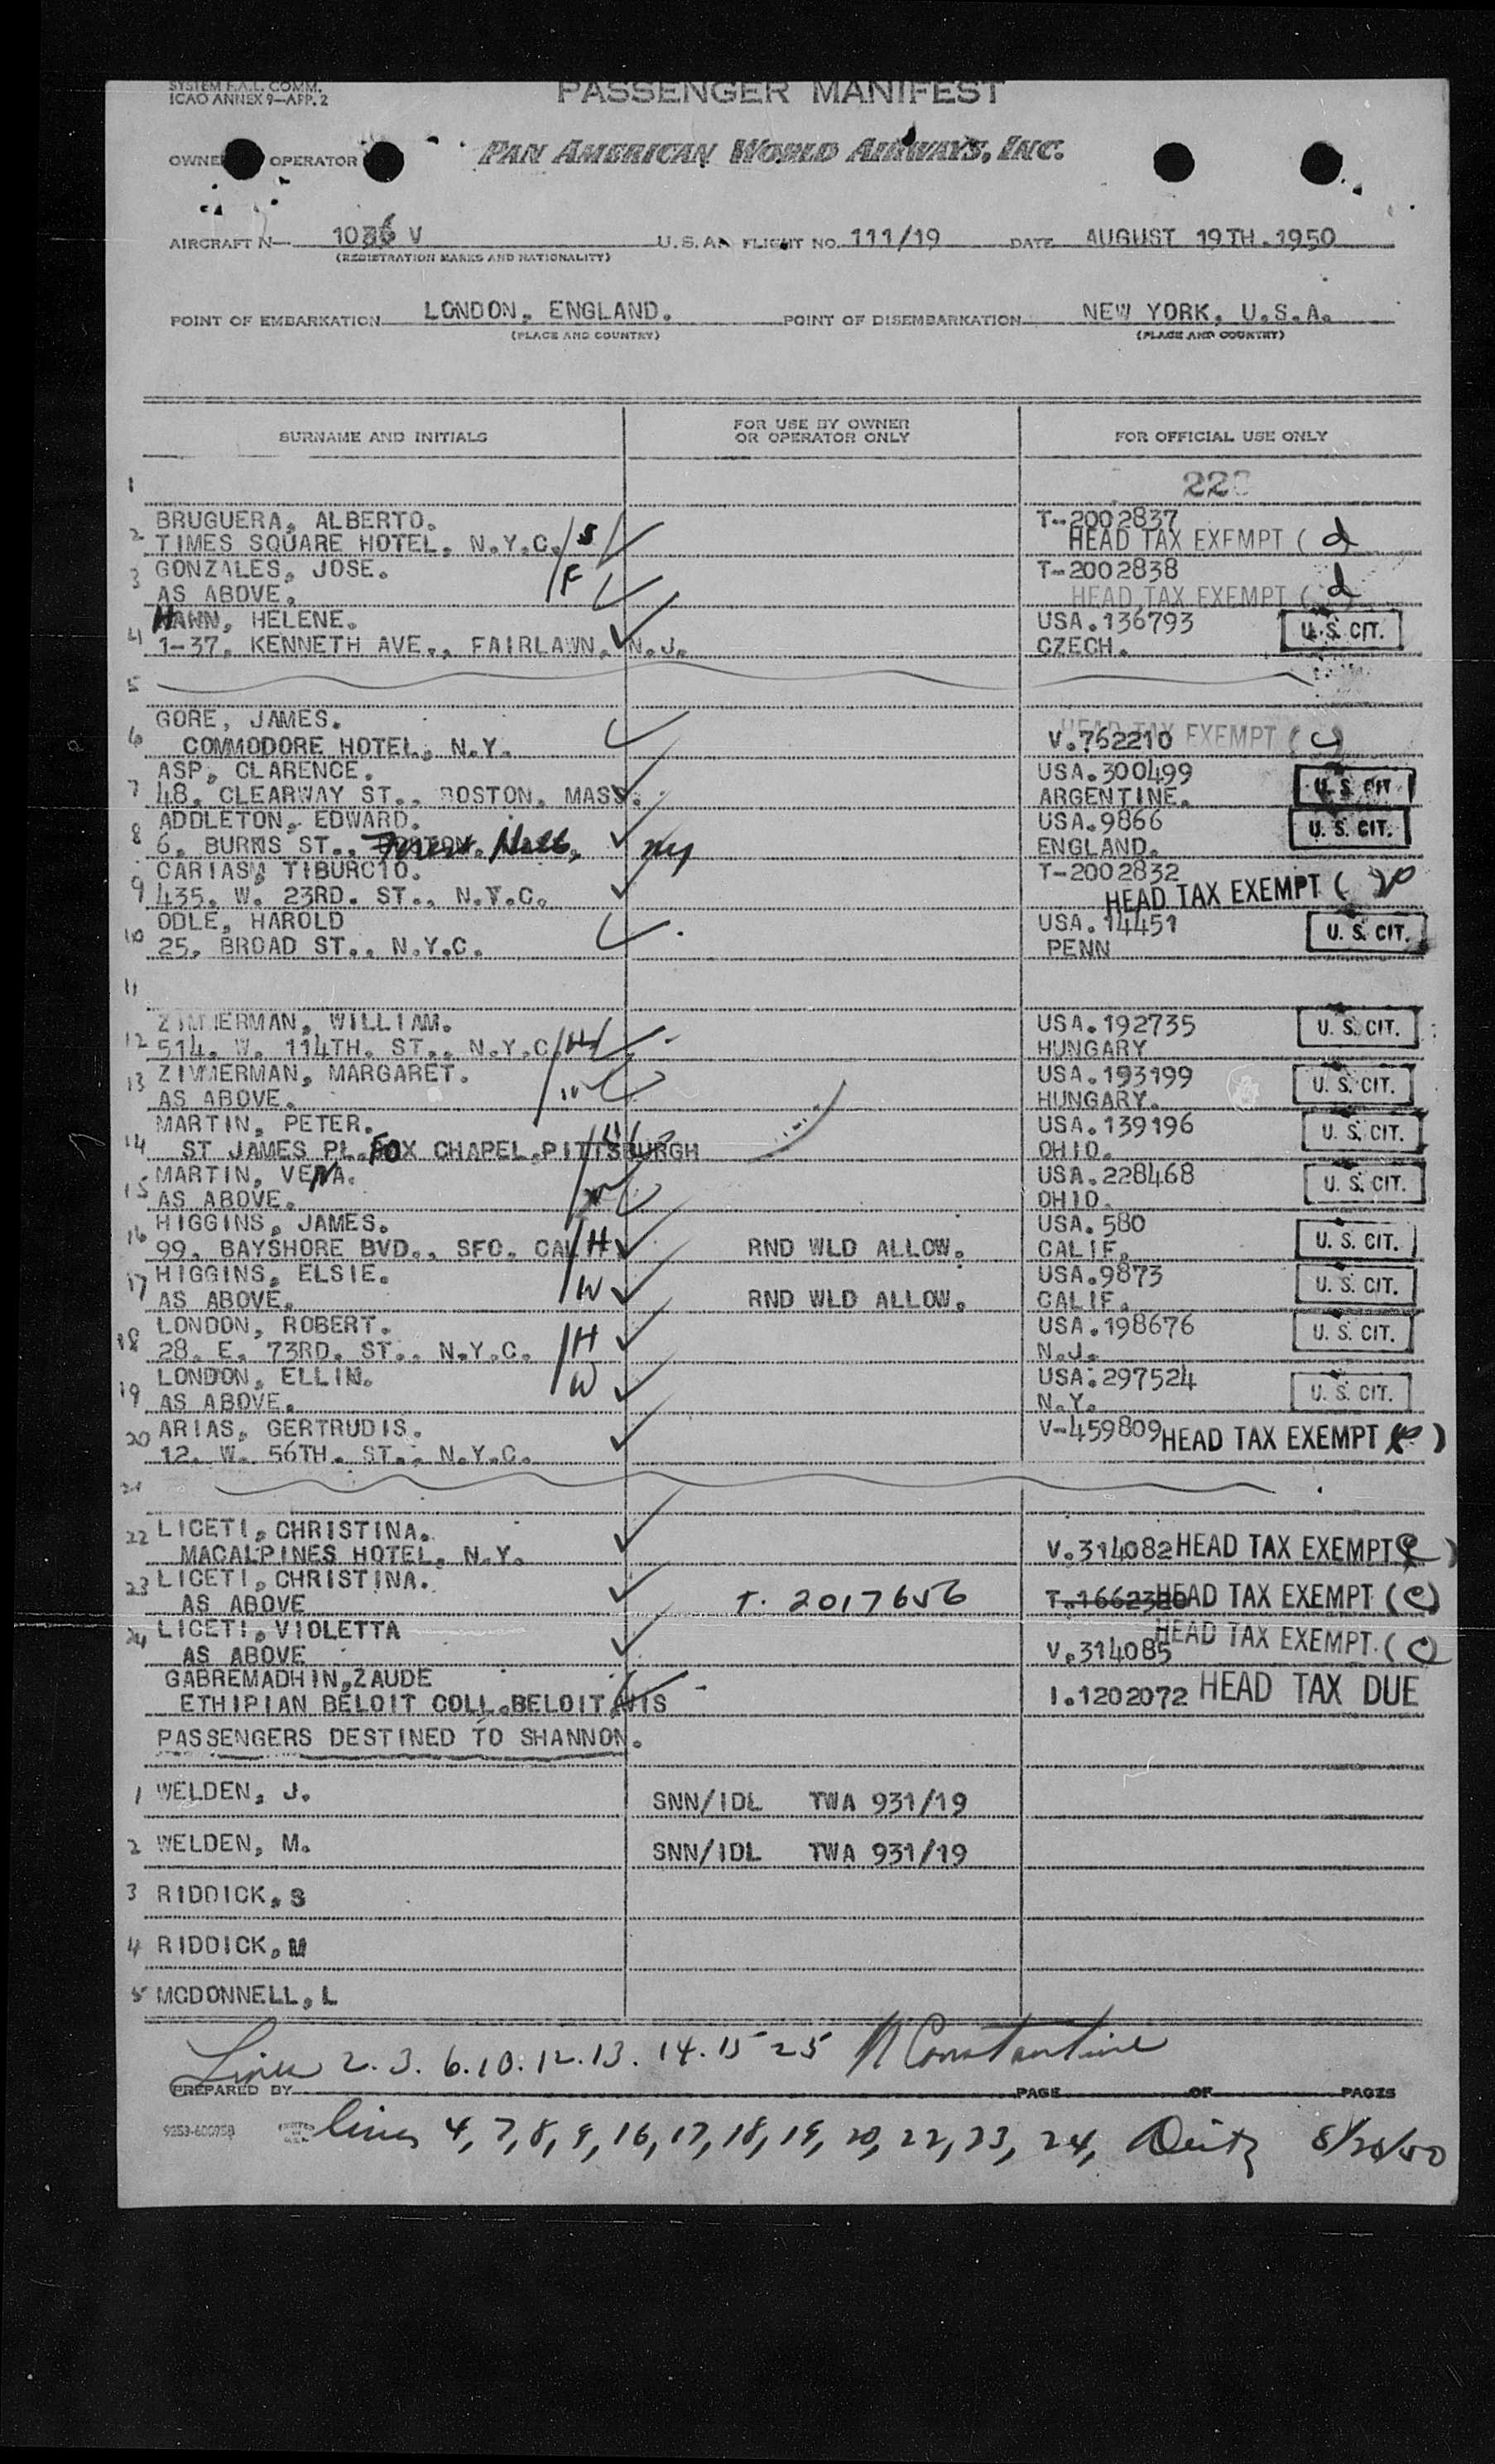 SYSTEM F.A.L. COMM.
ICAO ANNEX 9—APP. 2
PASSENGER MANIFEST
OWNER OPERATOR PAN AMERICAN WORLD AIRWAYS, INC.
AIRCRAFT N— 1036 V U.S.A. FLIGHT NO. 111/19 DATE AUGUST 19TH.1950
(REGISTRATION MARKS AND NATIONALITY)
POINT OF EMBARKATION LONDON, ENGLAND. POINT OF DISEMBARKATION NEW YORK, U.S.A.
(PLACE AND COUNTRY) (PLACE AND COUNTRY)
SURNAME AND INITIALS FOR USE BY OWNER OR OPERATOR ONLY FOR OFFICIAL USE ONLY
1
BRUGUERA, ALBERTO. T-2002837
2 TIMES SQUARE HOTEL, N.Y.C. S HEAD TAX EXEMPT ( d
3 GONZALES, JOSE. F T-2002838
AS ABOVE. HEAD TAX EXEMPT ( d
HANN, HELENE. USA.136793 U.S. CIT.
4 1-37. KENNETH AVE., FAIRLAWN. N.J. CZECH.
5
GORE, JAMES. HEAD TAX EXEMPT ( c)
6 COMMODORE HOTEL, N.Y. V.762210
ASP, CLARENCE. USA.300499 U.S. CIT.
7 48. CLEARWAY ST., BOSTON, MASS. ARGENTINE.
ADDLETON, EDWARD. USA.9866 U.S. CIT.
8 6. BURNS ST., Forest Hills, NY ENGLAND.
CARIASM TIBURCIO. T-2002832
9 435. W. 23RD. ST., N.Y.C. HEAD TAX EXEMPT (
ODLE, HAROLD USA.14451 U.S. CIT.
10 25. BROAD ST., N.Y.C. PENN
11
ZIMMERMAN, WILLIAM. USA.192735 U.S. CIT.
12 514. W. 114TH. ST., N.Y.C. H HUNGARY
13 ZIMMERMAN, MARGARET. W USA.193199 U.S. CIT.
AS ABOVE. HUNGARY.
MARTIN, PETER. USA.139196 U.S. CIT.
14 ST JAMES PL.FOX CHAPEL.PITTSBURGH H OHIO.
MARTIN, VENA. USA.228468 U.S. CIT.
15 AS ABOVE. W OHIO.
16 HIGGINS, JAMES. USA.580
99. BAYSHORE BVD., SFO. CALIF. H RND WLD ALLOW. CALIF. U.S. CIT.
17 HIGGINS, ELSIE. USA.9873 U.S. CIT.
AS ABOVE. W RND WLD ALLOW. CALIF.
LONDON, ROBERT. USA.198676 U.S. CIT.
18 28. E. 73RD. ST., N.Y.C. H N.J.
LONDON, ELLIN. W USA.297524 U.S. CIT.
19 AS ABOVE. N.Y.
20 ARIAS, GERTRUDIS. V-459809 HEAD TAX EXEMPT ( )
12. W. 56TH. ST., N.Y.C.
21
22 LICETI, CHRISTINA.
MACALPINES HOTEL, N.Y. V.314082 HEAD TAX EXEMPT (c)
23 LICETI, CHRISTINA.
AS ABOVE T. 2017656 T.1662320 HEAD TAX EXEMPT (c)
24 LICETI, VIOLETTA HEAD TAX EXEMPT (c)
AS ABOVE V.314085
GABREMADHIN,ZAUDE
ETHIPIAN BELOIT COLL.BELOIT,WIS I.1202072 HEAD TAX DUE
PASSENGERS DESTINED TO SHANNON.
1 WELDEN, J. SNN/IDL TWA 931/19
2 WELDEN, M. SNN/IDL TWA 931/19
3 RIDDICK, S
4 RIDDICK, M
5 MCDONNELL, L
Lines 2. 3. 6. 10. 12. 13. 14. 15 25 N Constantine
PREPARED BY PAGE OF PAGES
lines 4, 7, 8, 9, 16, 17, 18, 19, 20, 22, 23, 24, Deitz 8/20/50